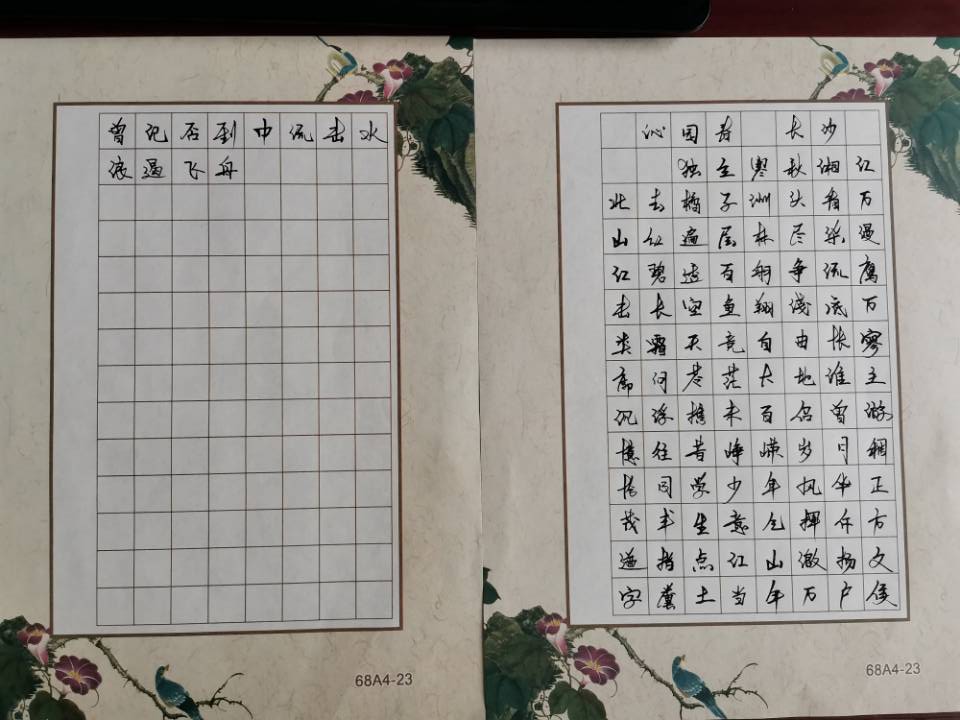 沁园春 长沙
独立寒秋湘江
北去橘子洲头看万
山红遍层林尽染漫
江碧透百舸争流鹰
击长空鱼翔浅底万
类霜天竞自由怅寥
廓问苍茫大地谁主
沉浮携来百侣曾游
忆往昔峥嵘岁月稠
恰同学少年风华正
茂书生意气挥斥方
遒指点江山激扬文
字粪土当年万户侯
68A4-23
曾记否到中流击水
浪遏飞舟
68A4-23